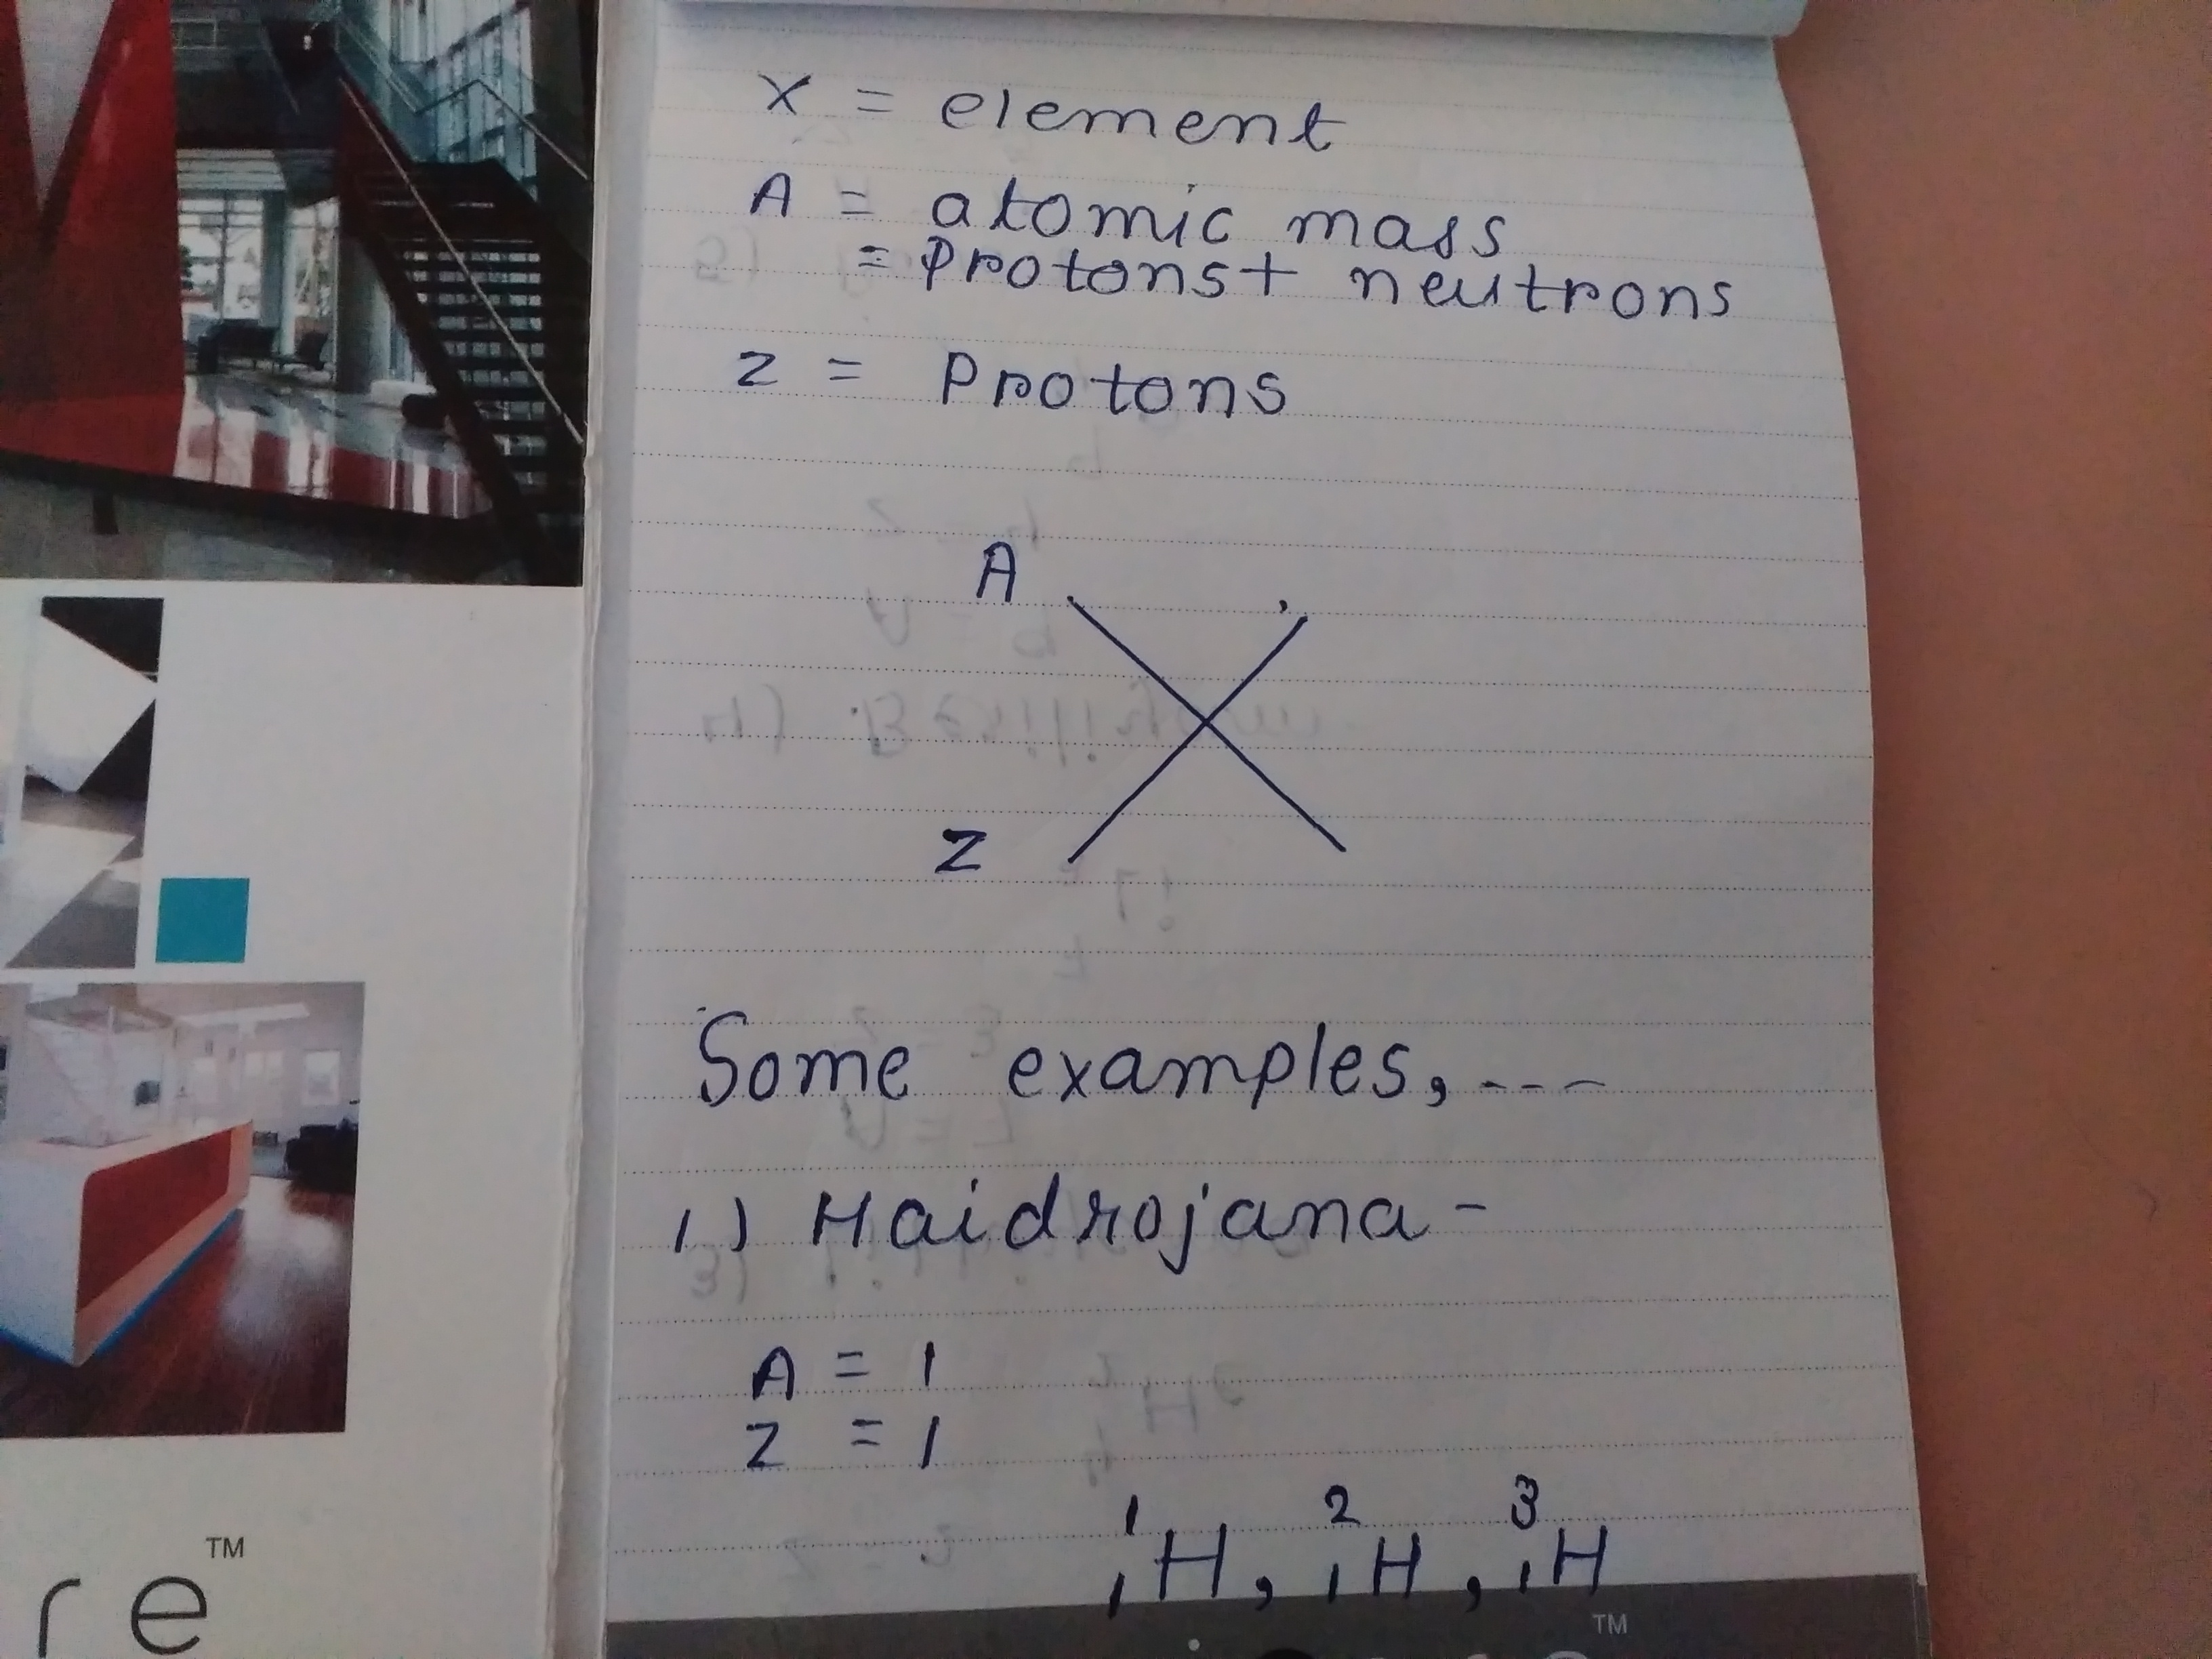 X = element
A = atomic mass
= Protons + neutrons
Z = Protons
A
X
Z
Some examples, ---
1) Haidrojana -
A = 1
Z = 1
¹₁H, ²₁H, ³₁H
re™
™